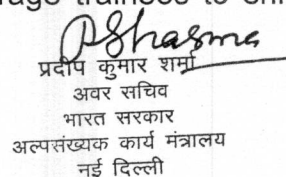 trainees to
PShasma
प्रदीप कुमार शर्मा
अवर सचिव
भारत सरकार
अल्पसंख्यक कार्य मंत्रालय
नई दिल्ली